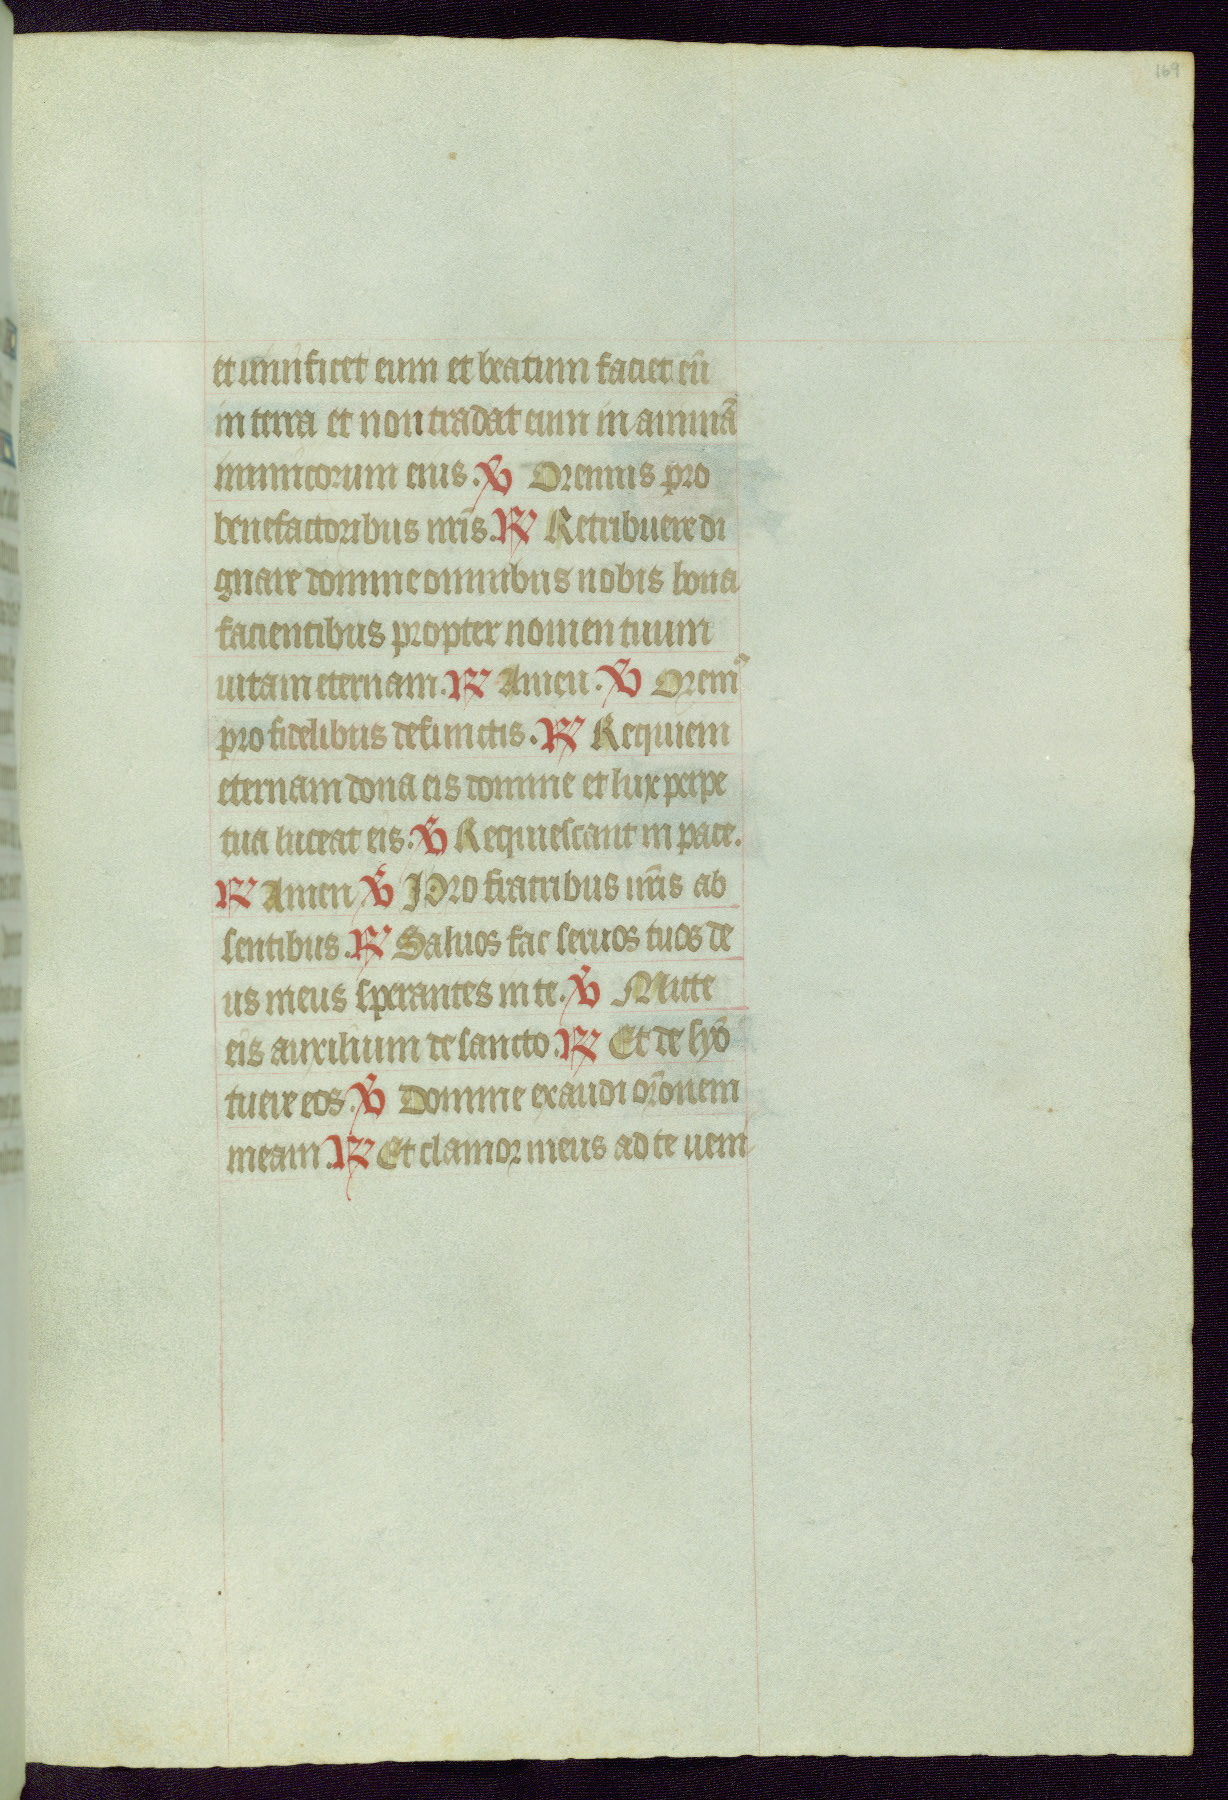 169
et uiuificet eum et beatum faciet eū
in terra et non tradat eum in animā
inimicorum eius. ℣ Oremus pro
benefactoribus nr̄is. ℟ Retribuere di
gnare domine omnibus nobis bona
facientibus propter nomen tuum
uitam eternam. ℟ Amen. ℣ Orem⁹
pro fidelibus defunctis. ℟ Requiem
eternam dona eis domine et lux perpe
tua luceat eis. ℣ Requiescant in pace.
℟ Amen ℣ Pro fratribus nr̄is ab
sentibus. ℟ Saluos fac seruos tuos de
us meus sperantes in te. ℣ Mitte
eis auxilium de sancto. ℟ Et de syō
tuere eos. ℣ Domine exaudi or̄onem
meam. ℟ Et clamor meus ad te ueni